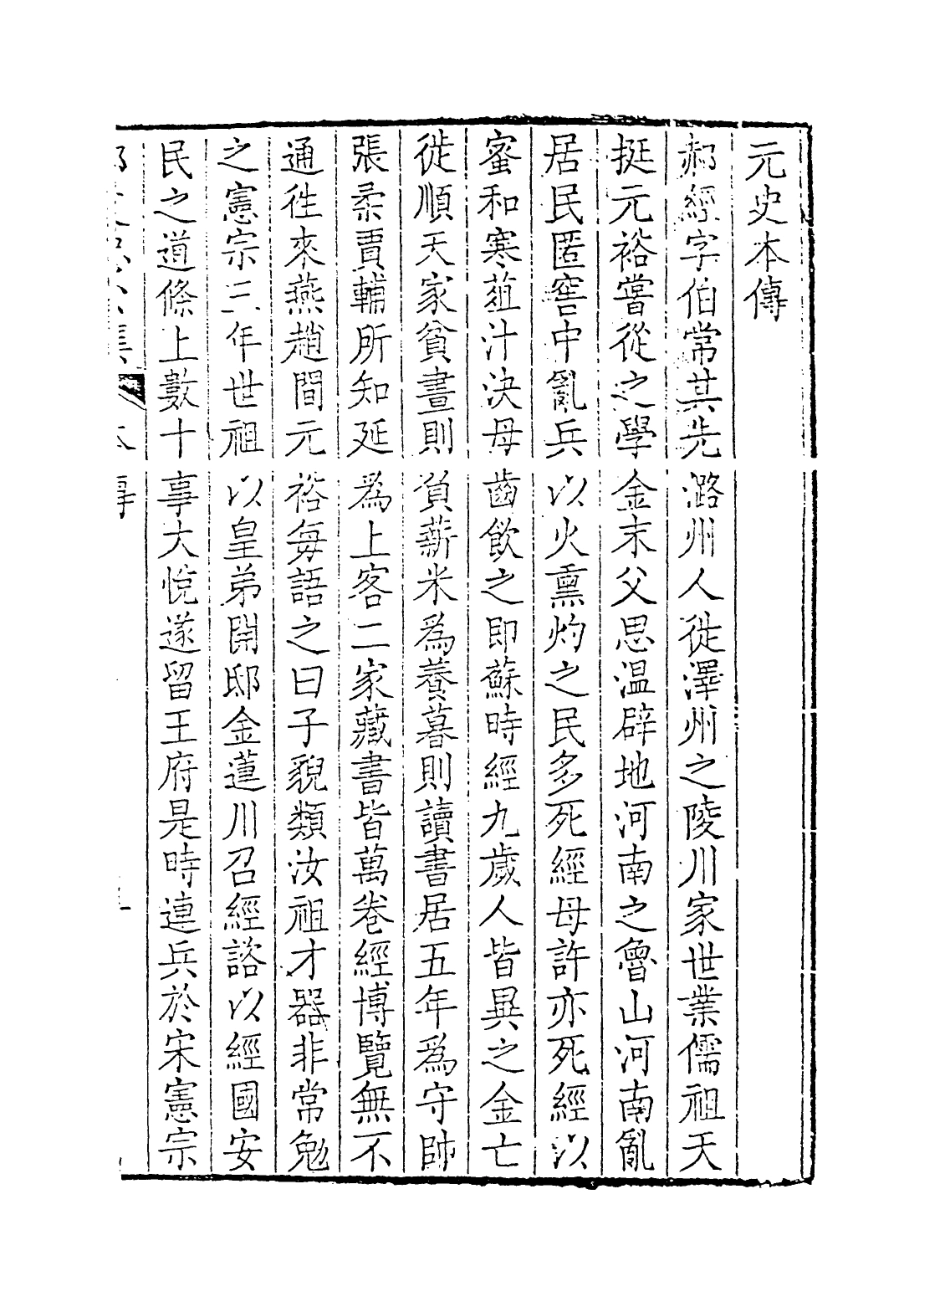 元史本傳
郝經字伯常其先潞州人徙澤州之陵川家世業儒祖天
挺元裕嘗從之學金末父思温辟地河南之魯山河南亂
居民匿窖中亂兵以火熏灼之民多死經母許亦死經以
蜜和寒葅汁決母齒飲之即蘇時經九歲人皆異之金亡
徙順天家貧晝則負薪米爲養暮則讀書居五年爲守帥
張柔賈輔所知延爲上客二家藏書皆萬卷經博覽無不
通徃來燕趙間元裕每語之曰子貌類汝祖才器非常勉
之憲宗三年世祖以皇弟開邸金蓮川召經諮以經國安
民之道條上數十事大悅遂留王府是時連兵於宋憲宗